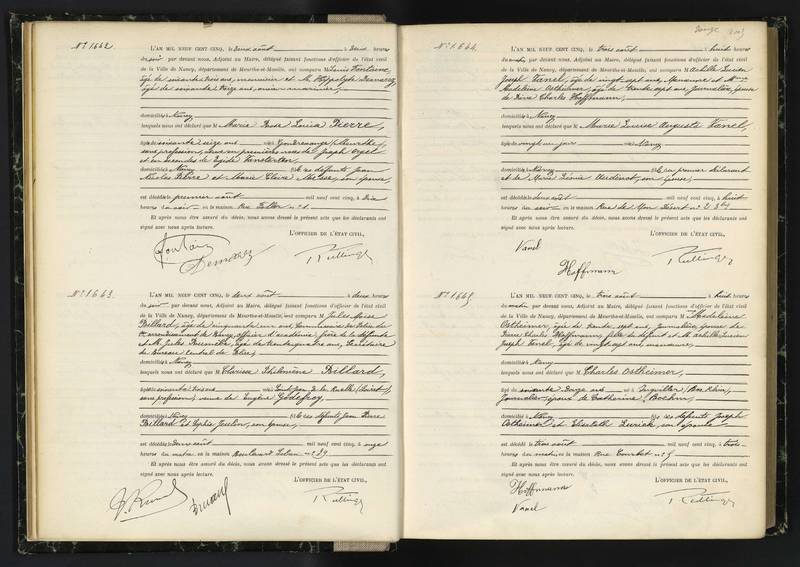 N° 1642
L'AN MIL NEUF CENT CINQ, le deux août à deux heures
du soir par devant nous, Adjoint au Maire, délégué faisant fonctions d'officier de l'état civil
de la Ville de Nancy, département de Meurthe-et-Moselle, ont comparu M Louis Fontaine,
âgé de soixante trois ans, et M. Hippolyte
âgé de soixante treize ans,
domiciliés à Nancy,
lesquels nous ont déclaré que M Marie Rose Louisa Pierre,
âgée de soixante seize ans née à Gondrexange (Meurthe),
sans profession, veuve en premières noces de Joseph
et en secondes de Egide
domiciliée à Nancy fille de défunts Jean
Nicolas Pierre et Marie Claire son épouse,
est décédée le premier août mil neuf cent cinq, à dix
heures du soir en la maison Rue n° 1
Et après nous être assuré du décès, nous avons dressé le présent acte que les déclarants ont
signé avec nous après lecture.
L'OFFICIER DE L'ÉTAT CIVIL,
Fontaine
N° 1643
L'AN MIL NEUF CENT CINQ, le deux août à deux heures
du soir par devant nous, Adjoint au Maire, délégué faisant fonctions d'officier de l'état civil
de la Ville de Nancy, département de Meurthe-et-Moselle, ont comparu M Jules
Billard, âgé de cinquante ans, Commissaire de Police du
arrondissement de Nancy, officier d'académie, frère de la défunte
et M. Jules âgé de trente quatre ans, Secrétaire
du Bureau central de Police,
domiciliés à Nancy
lesquels nous ont déclaré que M Clarisse Philomène Billard,
âgée de soixante trois ans née à Saint Jean de la Ruelle (Loiret)
sans profession, veuve de Eugène Godefroy
domiciliée à Nancy fille de défunts Jean Pierre
Billard et Sophie son épouse,
est décédée le deux août mil neuf cent cinq, à onze
heures du matin en la maison Boulevard Lobau n° 29
Et après nous être assuré du décès, nous avons dressé le présent acte que les déclarants ont
signé avec nous après lecture.
L'OFFICIER DE L'ÉTAT CIVIL,
N° 1644
L'AN MIL NEUF CENT CINQ, le trois août à huit heures
du matin par devant nous, Adjoint au Maire, délégué faisant fonctions d'officier de l'état civil
de la Ville de Nancy, département de Meurthe-et-Moselle, ont comparu M Achille Lucien
Joseph Vanel, âgé de vingt sept ans, Manœuvre et Mme
Madeleine Ostheimer, âgée de trente sept ans, journalière, épouse
de Pierre Charles Hoffmann,
domiciliés à Nancy
lesquels nous ont déclaré que M Marie Louise Auguste Vanel,
âgée de vingt un jours née à Nancy
domiciliée à Nancy fille du premier déclarant
et de Marie son épouse,
est décédée le deux août mil neuf cent cinq, à huit
heures du soir en la maison Rue de Mon Désert n° 2
Et après nous être assuré du décès, nous avons dressé le présent acte que les déclarants ont
signé avec nous après lecture.
L'OFFICIER DE L'ÉTAT CIVIL,
Vanel
Hoffmann
N° 1645
L'AN MIL NEUF CENT CINQ, le trois août à huit heures
du matin par devant nous, Adjoint au Maire, délégué faisant fonctions d'officier de l'état civil
de la Ville de Nancy, département de Meurthe-et-Moselle, ont comparu M Madeleine
Ostheimer, âgée de trente sept ans, journalière, épouse de
Pierre Charles Hoffmann, fille du défunt et M Achille Lucien
Joseph Vanel, âgé de vingt sept ans manœuvre,
domiciliés à Nancy
lesquels nous ont déclaré que M Charles Ostheimer,
âgé de soixante ans né à Ingwiller (Bas Rhin),
journalier, époux de Catherine Boehm,
domicilié à Nancy fils de défunts Joseph
Ostheimer et Elisabeth son épouse
est décédé le trois août mil neuf cent cinq, à trois
heures du matin en la maison Rue Courbet n° 5
Et après nous être assuré du décès, nous avons dressé le présent acte que les déclarants ont
signé avec nous après lecture.
L'OFFICIER DE L'ÉTAT CIVIL,
Hoffmann
Vanel